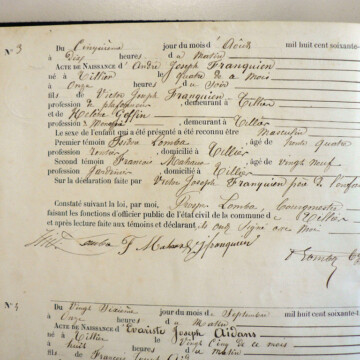 N° 3
Du Cinquième jour du mois d'Août mil huit cent soixante-
à dix heures du Matin
ACTE DE NAISSANCE d'André Joseph Franquien
né à Tillier le quatre de ce mois
à Onze heures du Soir
fils de Victor Joseph Franquien
profession de plafonneur, demeurant à Tillier
et de Goffin
profession de Ménagère, demeurant à Tillier
Le sexe de l'enfant qui a été présenté a été reconnu être Masculin
Premier témoin Isidore Lomba âgé de trente quatre
profession, domicilié à Tillier
Second témoin François Mahaux âgé de vingt neuf
profession Jardinier, domicilié à Tillier
Sur la déclaration faite par Victor Joseph Franquien père de l'enfant
Constaté suivant la loi, par moi, Prosper Lomba, Bourgmestre
faisant les fonctions d'officier public de l'état civil de la commune de Tillier
et après lecture faite aux témoins et déclarant ils ont signé avec moi
Lomba F Mahaux VJ franquien
Lomba
N° 4
Du Vingt Sixième jour du mois de Septembre mil huit cent soixante-
à Onze heures du Matin
ACTE DE NAISSANCE d'Evariste Joseph Aidans
né à Tillier le Vingt Cinq de ce mois
à huit heures du
fils de François